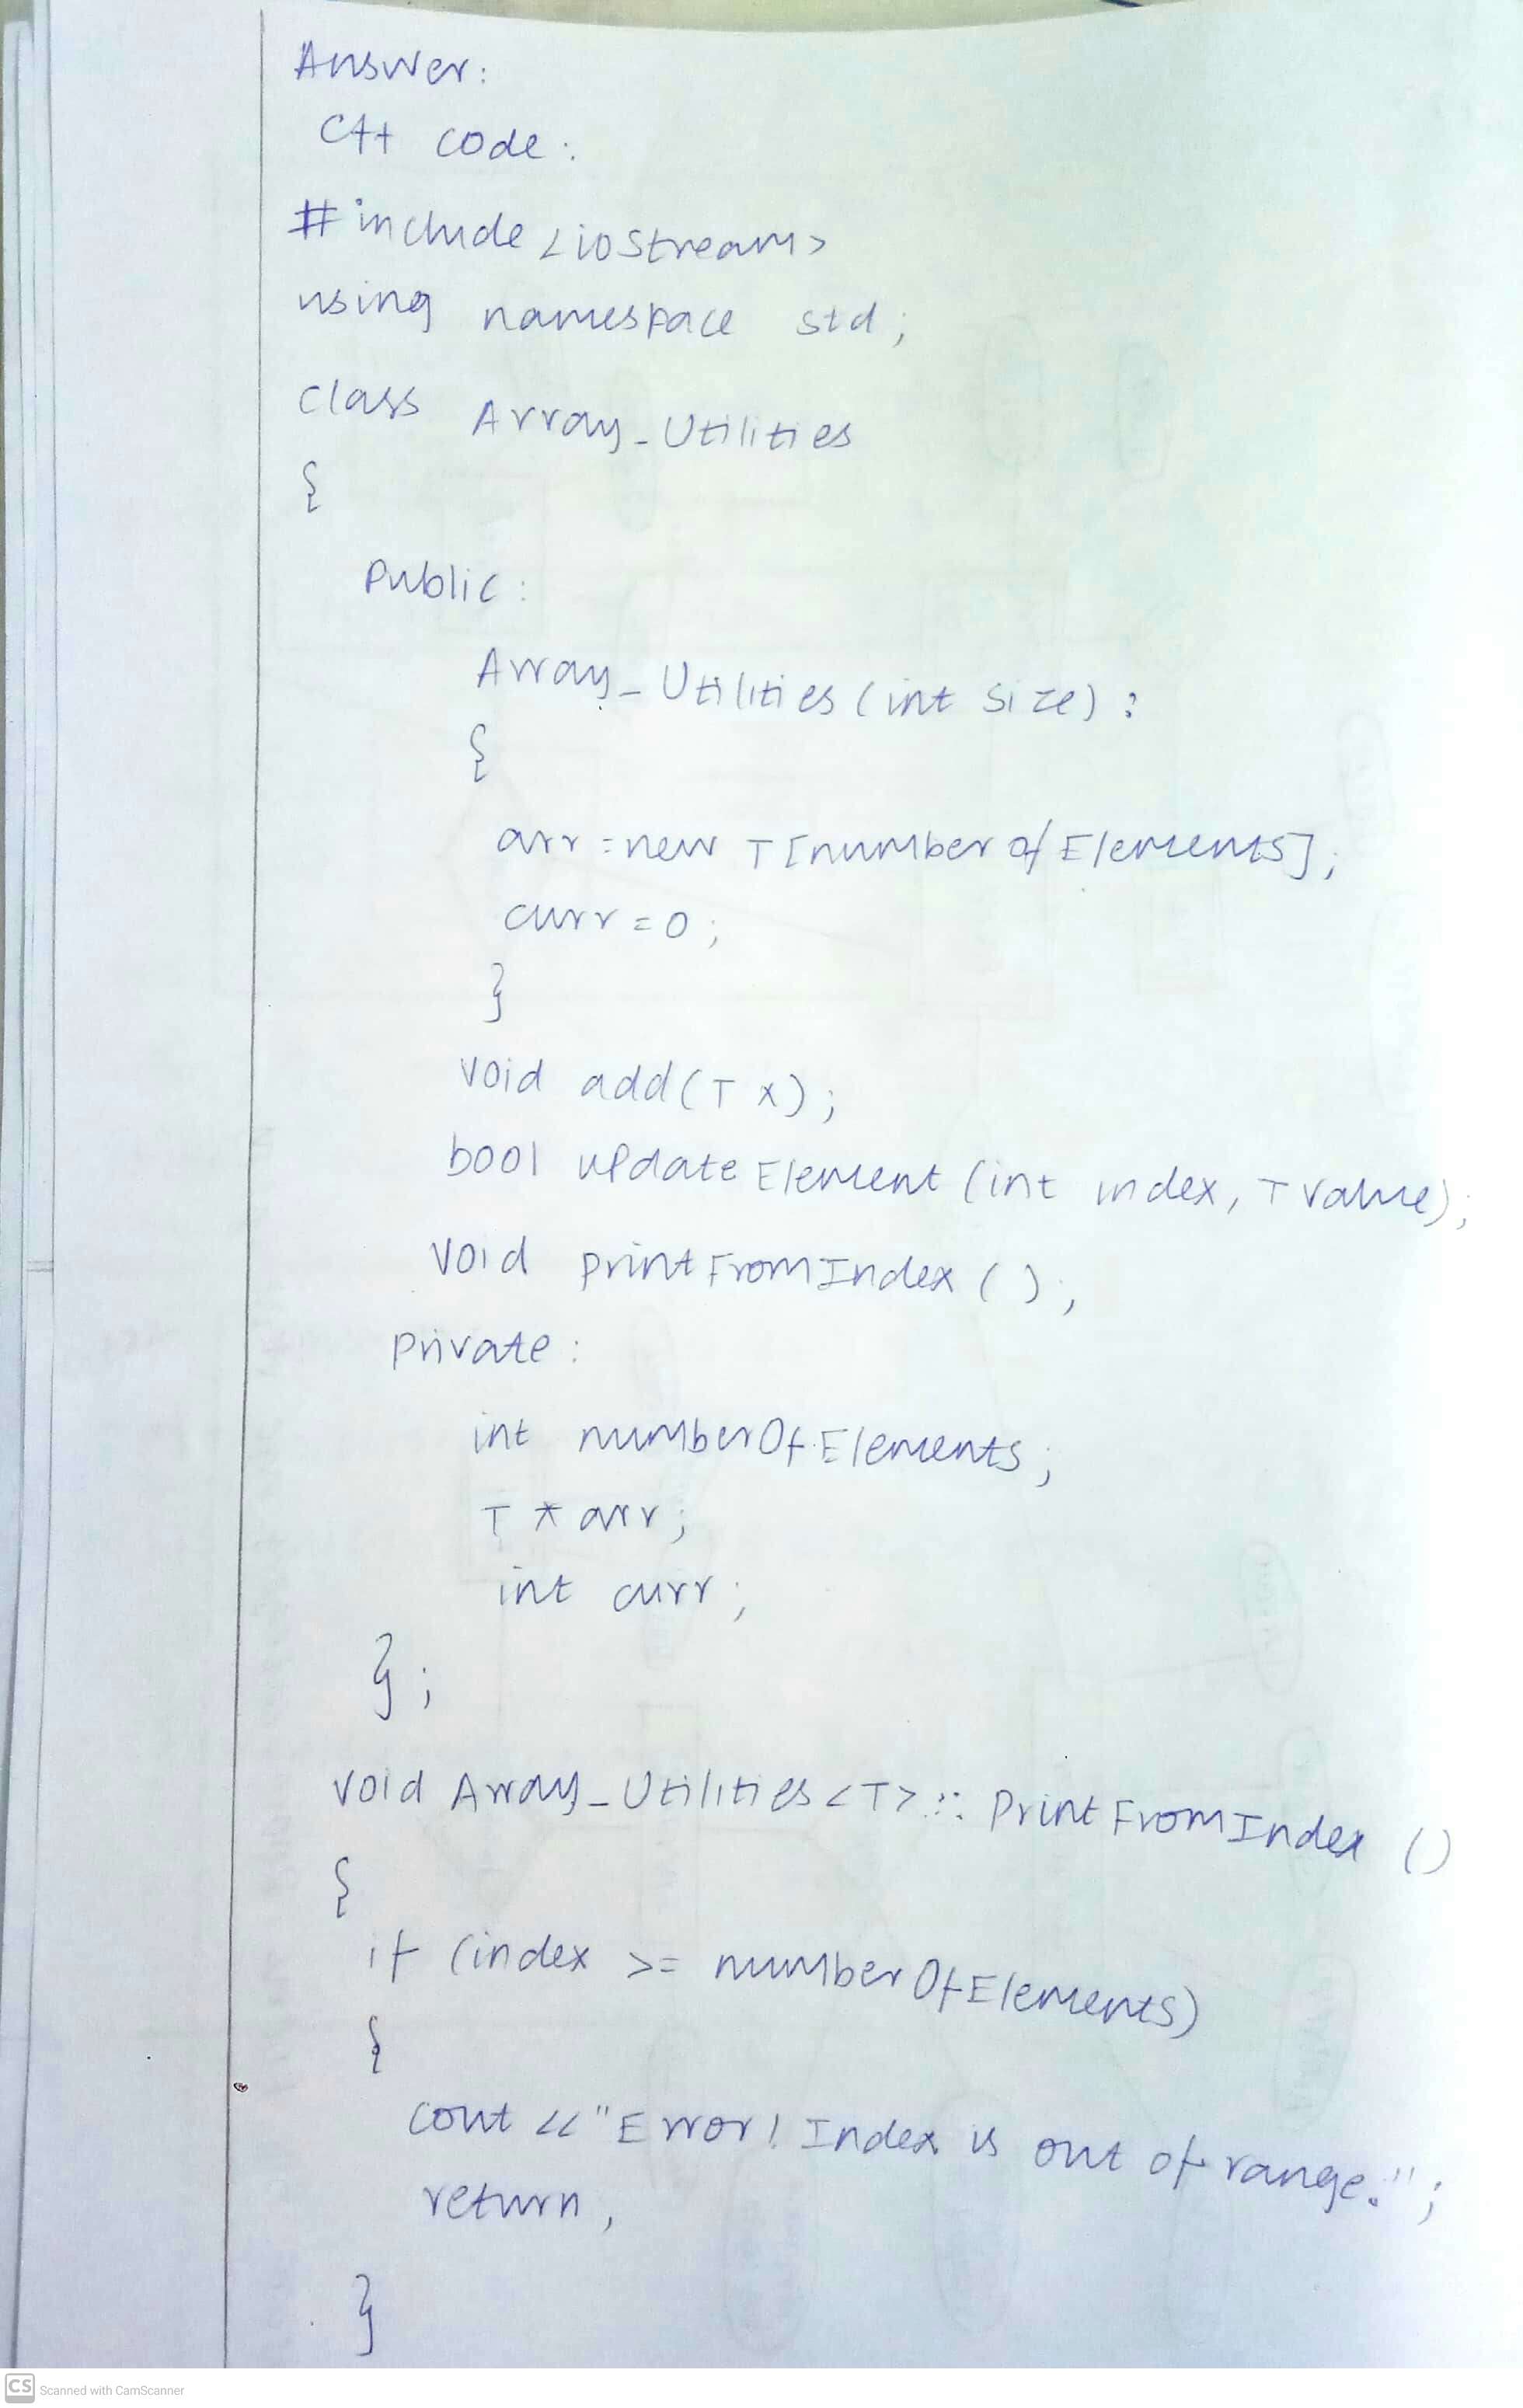 Answer:
C++ code:
#include <ioStream>
using namespace std;
class Array_Utilities
{
Public:
Array_Utilities (int Size) :
{
arr = new T [number of Elements];
curr = 0;
}
void add(T x);
bool update Element (int index, T value);
void print From Index ( );
Private:
int numberOf Elements;
T * arr;
int curr;
};
void Array_Utilities <T> :: Print From Index ()
{
if (index >= number OfElements)
{
cout << "Error! Index is out of range.";
return,
}
CS Scanned with CamScanner